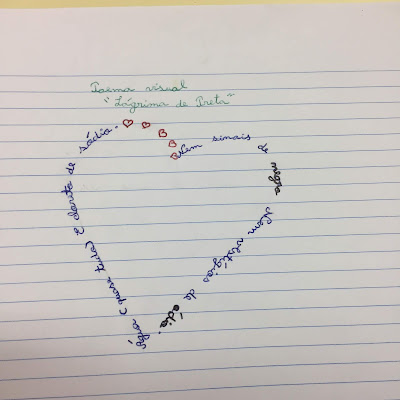 Poema visual
"Lágrima de Preta"
Nem sinais de negro
Nem vestígios de ódio.
Água (quase tudo) E cloreto de sódio.